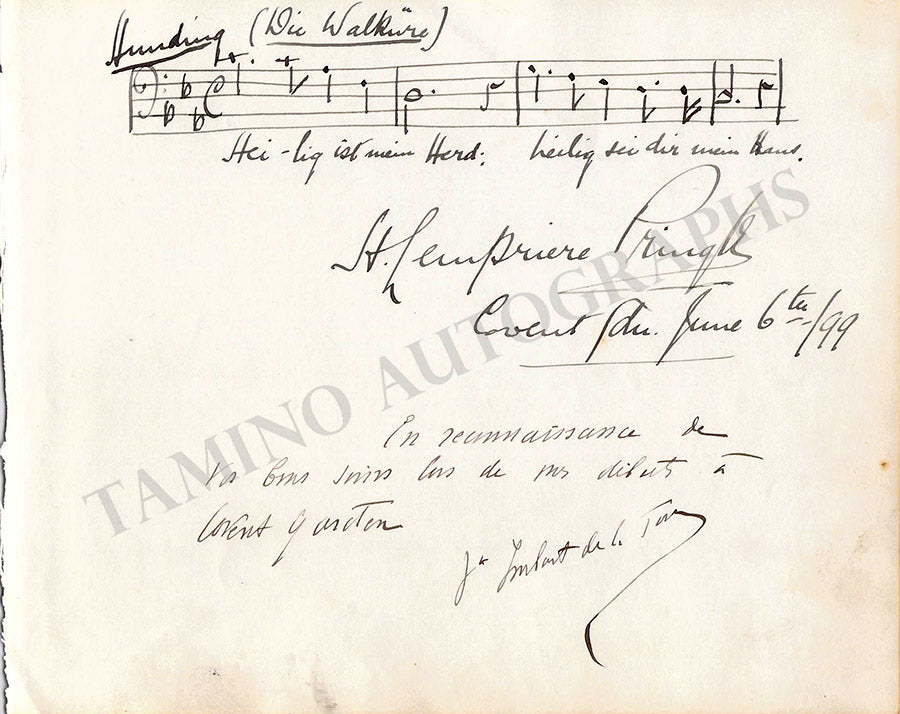 Hunding (Die Walküre)
Hei-lig ist mein Herd; heilig sei dir mein Haus.
St. Lempriere Pringle
Covent Gdn. June 6th/99
TAMINO AUTOGRAPHS
En reconnaissance de
vos bons soins lors de mes débuts à
Covent Garden
Imbart de la Tour